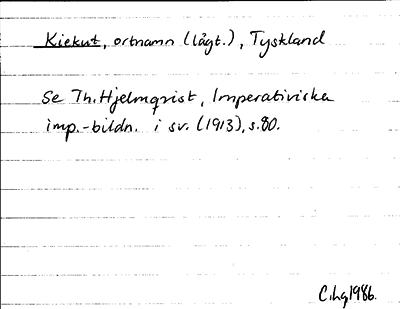 Kiekut, ortnamn (lågt.), Tyskland
Se Th. Hjelmqvist, Imperativiska
imp.-bildn. i sv. (1913), s.80.
C.hq 1986.